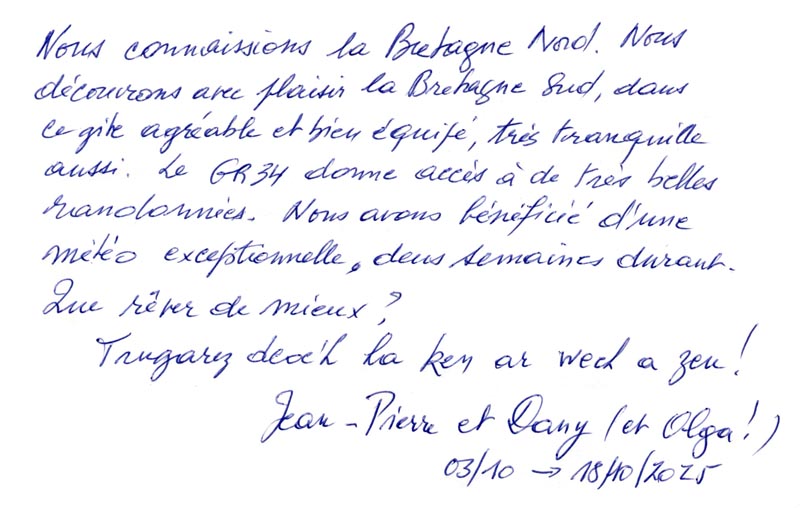 Nous connaissions la Bretagne Nord. Nous
découvrons avec plaisir la Bretagne Sud, dans
ce gîte agréable et bien équipé, très tranquille
aussi. Le GR34 donne accès à de très belles
randonnées. Nous avons bénéficié d'une
météo exceptionnelle, deux semaines durant.
Que rêver de mieux ?
Trugarez deoc'h ha ken ar wech a zeu !
Jean-Pierre et Dany (et Olga !)
03/10 → 18/10/2025